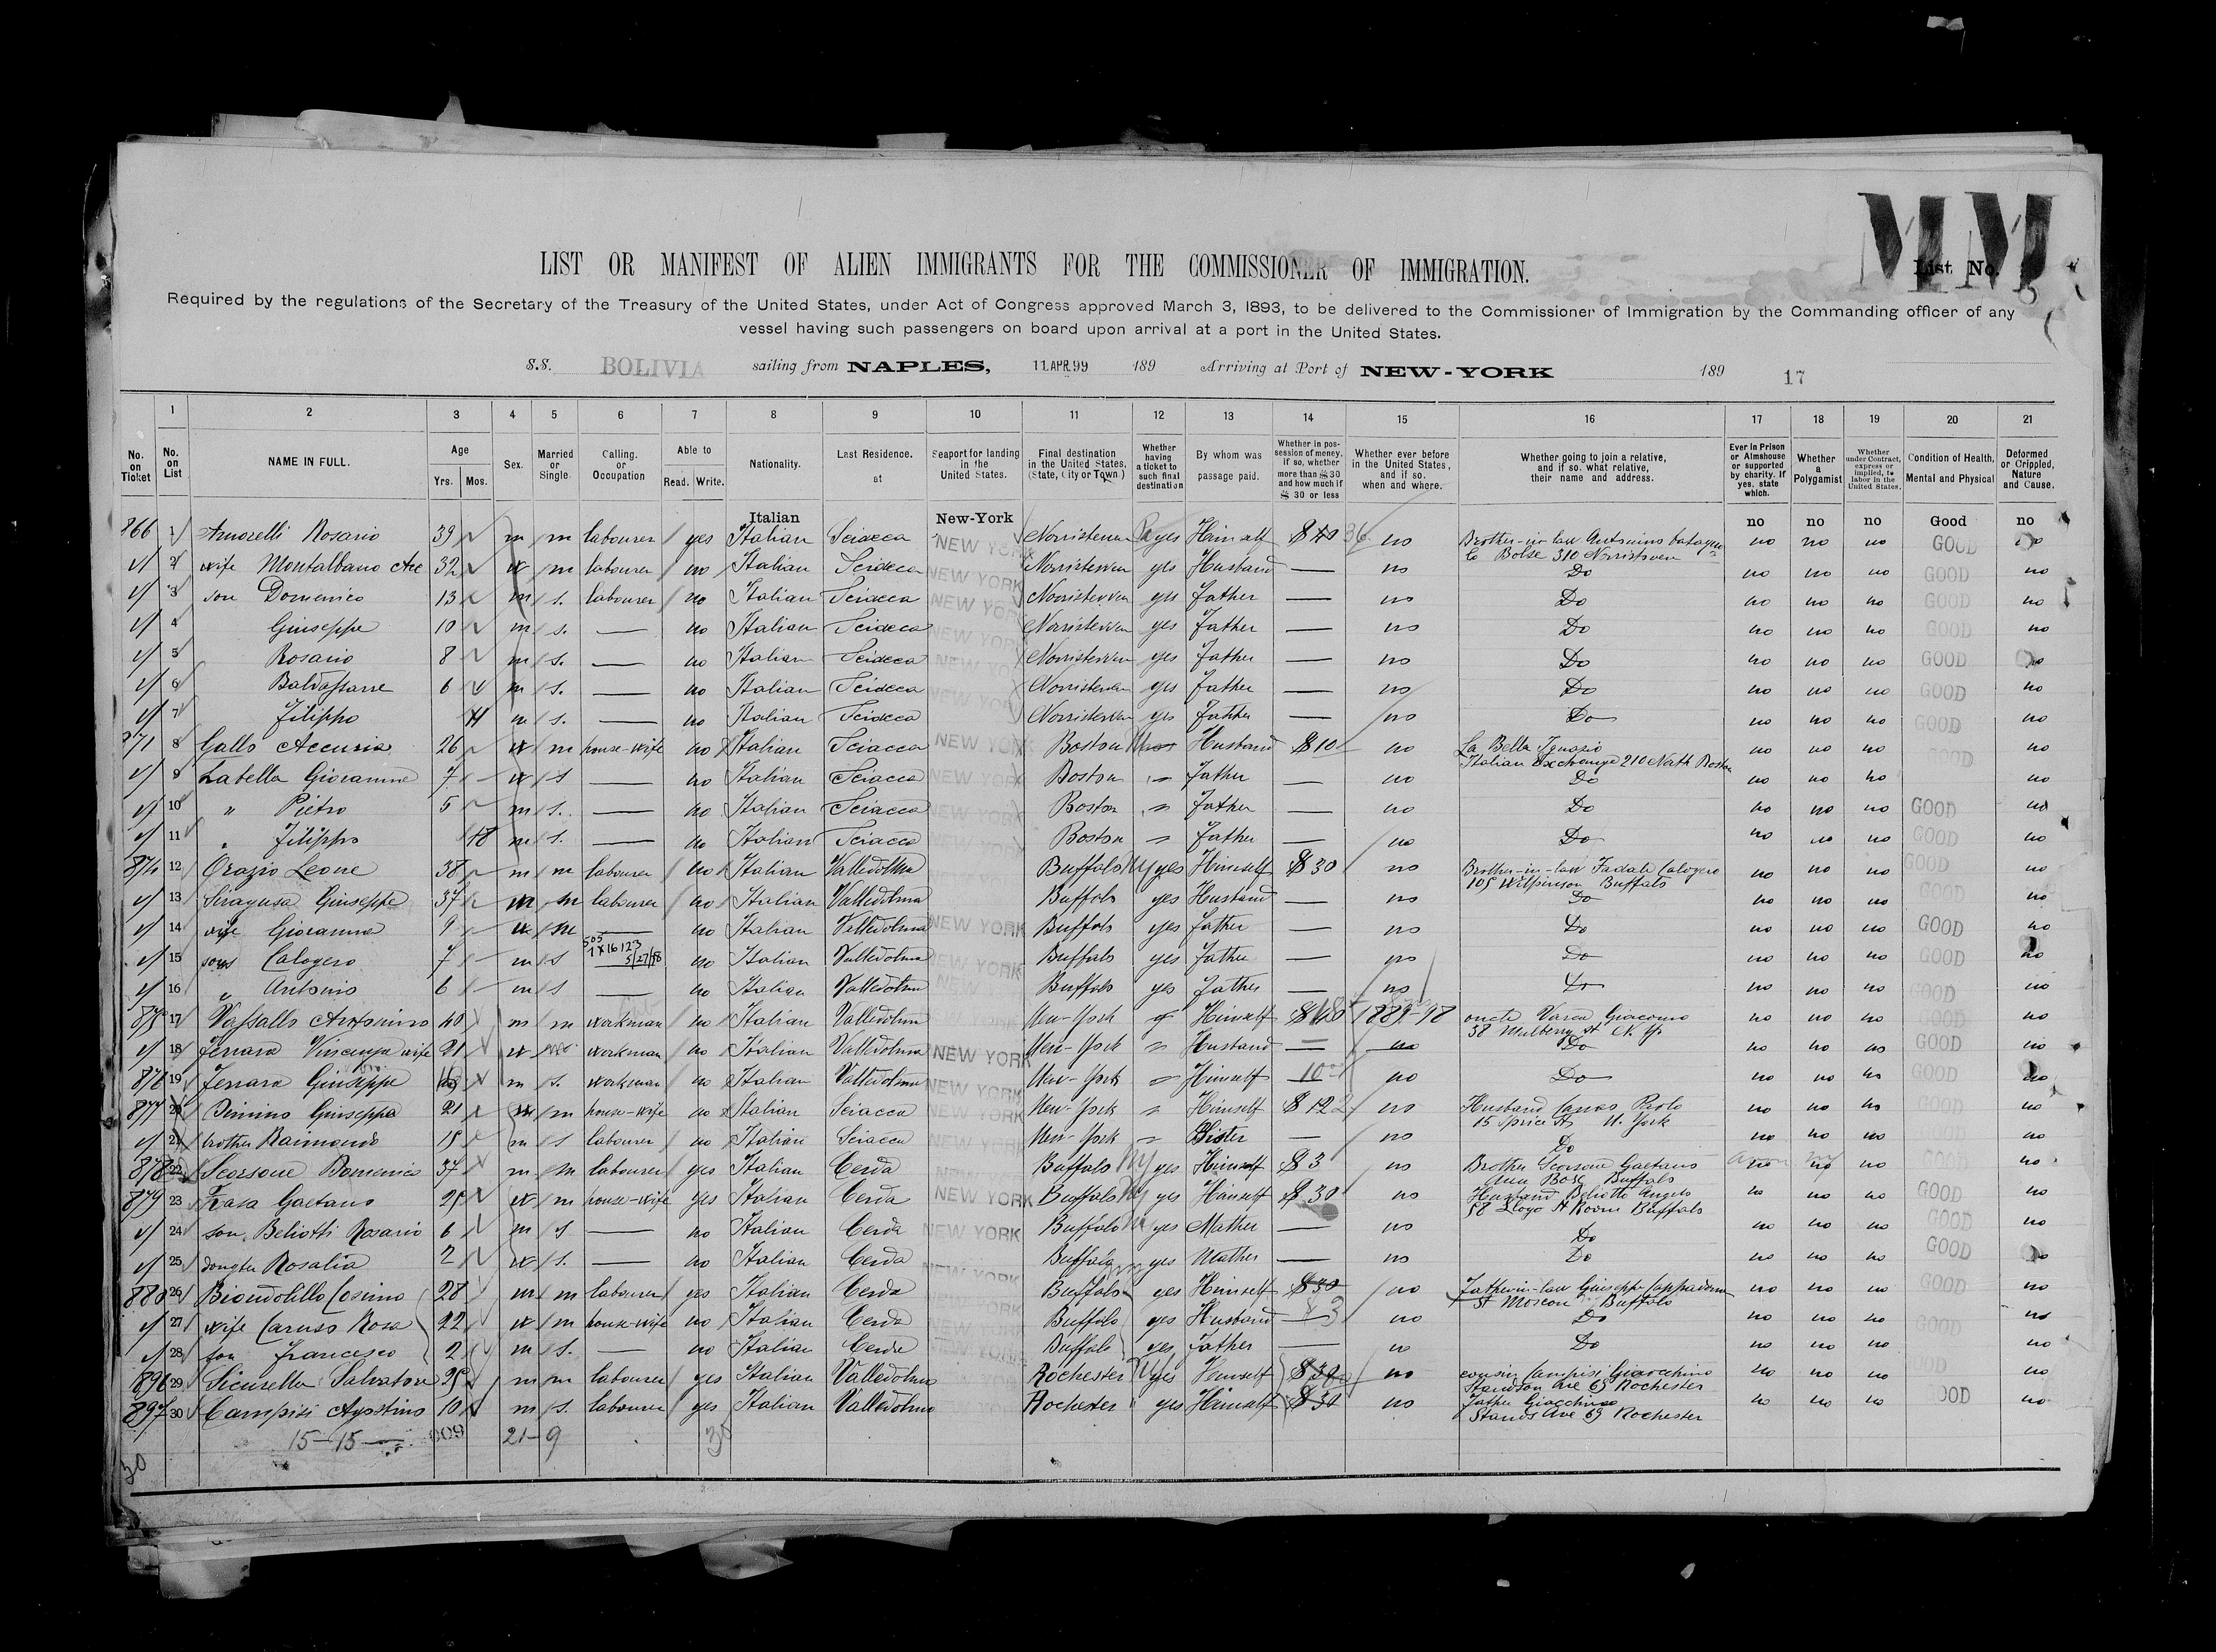 MM
List No.
LIST OR MANIFEST OF ALIEN IMMIGRANTS FOR THE COMMISSIONER OF IMMIGRATION.
Required by the regulations of the Secretary of the Treasury of the United States, under Act of Congress approved March 3, 1893, to be delivered to the Commissioner of Immigration by the Commanding officer of any
vessel having such passengers on board upon arrival at a port in the United States.
S.S. BOLIVIA sailing from NAPLES, 11.APR.99 189 Arriving at Port of NEW-YORK 189 17
1 2 3 4 5 6 7 8 9 10 11 12 13 14 15 16 17 18 19 20 21
No. on Ticket No. on List NAME IN FULL. Age Yrs. Mos. Sex. Married or Single Calling. or Occupation Able to Read. Write. Nationality. Last Residence. at Seaport for landing in the United States. Final destination in the United States, (State, City or Town) Whether having a ticket to such final destination By whom was passage paid. Whether in possession of money, if so, whether more than $ 30 and how much if $ 30 or less Whether ever before in the United States, and if so, when and where. Whether going to join a relative, and if so, what relative, their name and address. Ever in Prison or Almshouse or supported by charity. If yes, state which. Whether a Polygamist Whether under Contract, express or implied, to labor in the United States. Condition of Health, Mental and Physical Deformed or Crippled, Nature and Cause.
Italian New-York no no no Good no
866 1 Amorelli Rosario 39 m m labourer yes Italian Sciacca NEW YORK Norristown Pa yes Himself no Brother-in-law Antonino no no no GOOD no
310 Norristown
2 wife Montalbano Acc 32 m labourer no Italian Sciacca NEW YORK Norristown yes Husband — no Do no no no GOOD no
3 son Domenico 13 m s. labourer no Italian Sciacca NEW YORK Norristown yes Father — no Do no no no GOOD no
4 Giuseppe 10 m s. — no Italian Sciacca NEW YORK Norristown yes Father — no Do no no no GOOD no
5 Rosario 8 m s. — no Italian Sciacca NEW YORK Norristown yes Father — no Do no no no GOOD no
6 Baldassare 6 m s. — no Italian Sciacca NEW YORK Norristown yes Father — no Do no no no GOOD no
7 Filippo m s. — no Italian Sciacca Norristown yes Father — no Do no no no GOOD no
871 8 Gallo Accursia 26 m house-wife no Italian Sciacca NEW YORK Boston Husband $10 no La Bella Ignazio no no no GOOD no
Italian Exchange 210 North Boston
9 Labella Giovanna 7 s — no Italian Sciacca NEW YORK Boston Father — no Do no no no no
10 " Pietro 5 m s. — no Italian Sciacca NEW YORK Boston Father — no Do no no no GOOD no
11 " Filippo 18 m s. — no Italian Sciacca NEW YORK Boston Father — no Do no no no GOOD no
874 12 Orazio Leone 38 m m labourer no Italian Valledolma Buffalo NY yes Himself $30 no Brother-in-law Calogero no no no GOOD no
105 Wilkinson Buffalo
13 Siragusa Giuseppe 37 m labourer no Italian Valledolma Buffalo yes Husband — no Do no no no GOOD no
14 Giovanna 9 — no Italian Valledolma NEW YORK Buffalo yes Father — no Do no no no GOOD no
505
1X16123
5/27/58
15 sons Calogero 7 m s no Italian Valledolma NEW YORK Buffalo yes Father — no Do no no no GOOD no
16 " Antonio 6 m s — no Italian Valledolma Buffalo yes Father — no Do no no no GOOD no
875 17 Vassallo Antonino 40 m m workman no Italian Valledolma New-York Himself uncle Giacomo no no no GOOD no
38 Mulberry St N. Y.
18 Ferrara Vincenza wife 21 workman no Italian Valledolma NEW YORK New-York Husband — no Do no no no GOOD no
876 19 Ferrara Giuseppe m s. workman no Italian Valledolma NEW YORK New-York Himself 10 no Do no no no GOOD no
877 20 Dimino Giuseppa 21 m house-wife no Italian Sciacca NEW YORK New-York Himself $12 no Husband Paolo no no no GOOD no
15 N. York
21 brother Raimondo 15 m s labourer no Italian Sciacca NEW YORK New-York Sister — no Do no no no no
878 22 Scorsone Domenico 37 m m labourer yes Italian Cerda Buffalo NY yes Himself $3 no Brother Scorsone Gaetano no no no GOOD no
Buffalo
879 23 Rasa Gaetano 25 m house-wife yes Italian Cerda NEW YORK Buffalo NY yes Himself $30 no Husband Beliotti Angelo no no no GOOD no
58 Buffalo
24 son Beliotti Rosario 6 m s — no Italian Cerda NEW YORK Buffalo yes Mather — no Do no no no GOOD no
25 Rosalia 2 s. — no Italian Cerda NEW YORK Buffalo yes Mather — no Do no no no GOOD no
880 26 Biondolillo Cosimo 28 m m labourer yes Italian Cerda Buffalo yes Himself $30 no Father-in-law Giuseppe no no no GOOD no
Buffalo
27 wife Caruso Rosa 22 m house-wife no Italian Cerda Buffalo yes Husband 3 no Do no no no GOOD no
28 son Francesco 2 m s. — no Italian Cerda NEW YORK Buffalo yes Father — no Do no no no no
896 29 Salvatore 25 m m labourer yes Italian Valledolma Rochester NY yes Himself no cousin Campisi Gioacchino no no no no
69 Rochester
897 30 Campisi Agostino 10 m s. labourer yes Italian Valledolma Rochester " yes Himself no Father Gioacchino no no no GOOD no
Ave 69 Rochester
15—15— 909 21-9 30
30